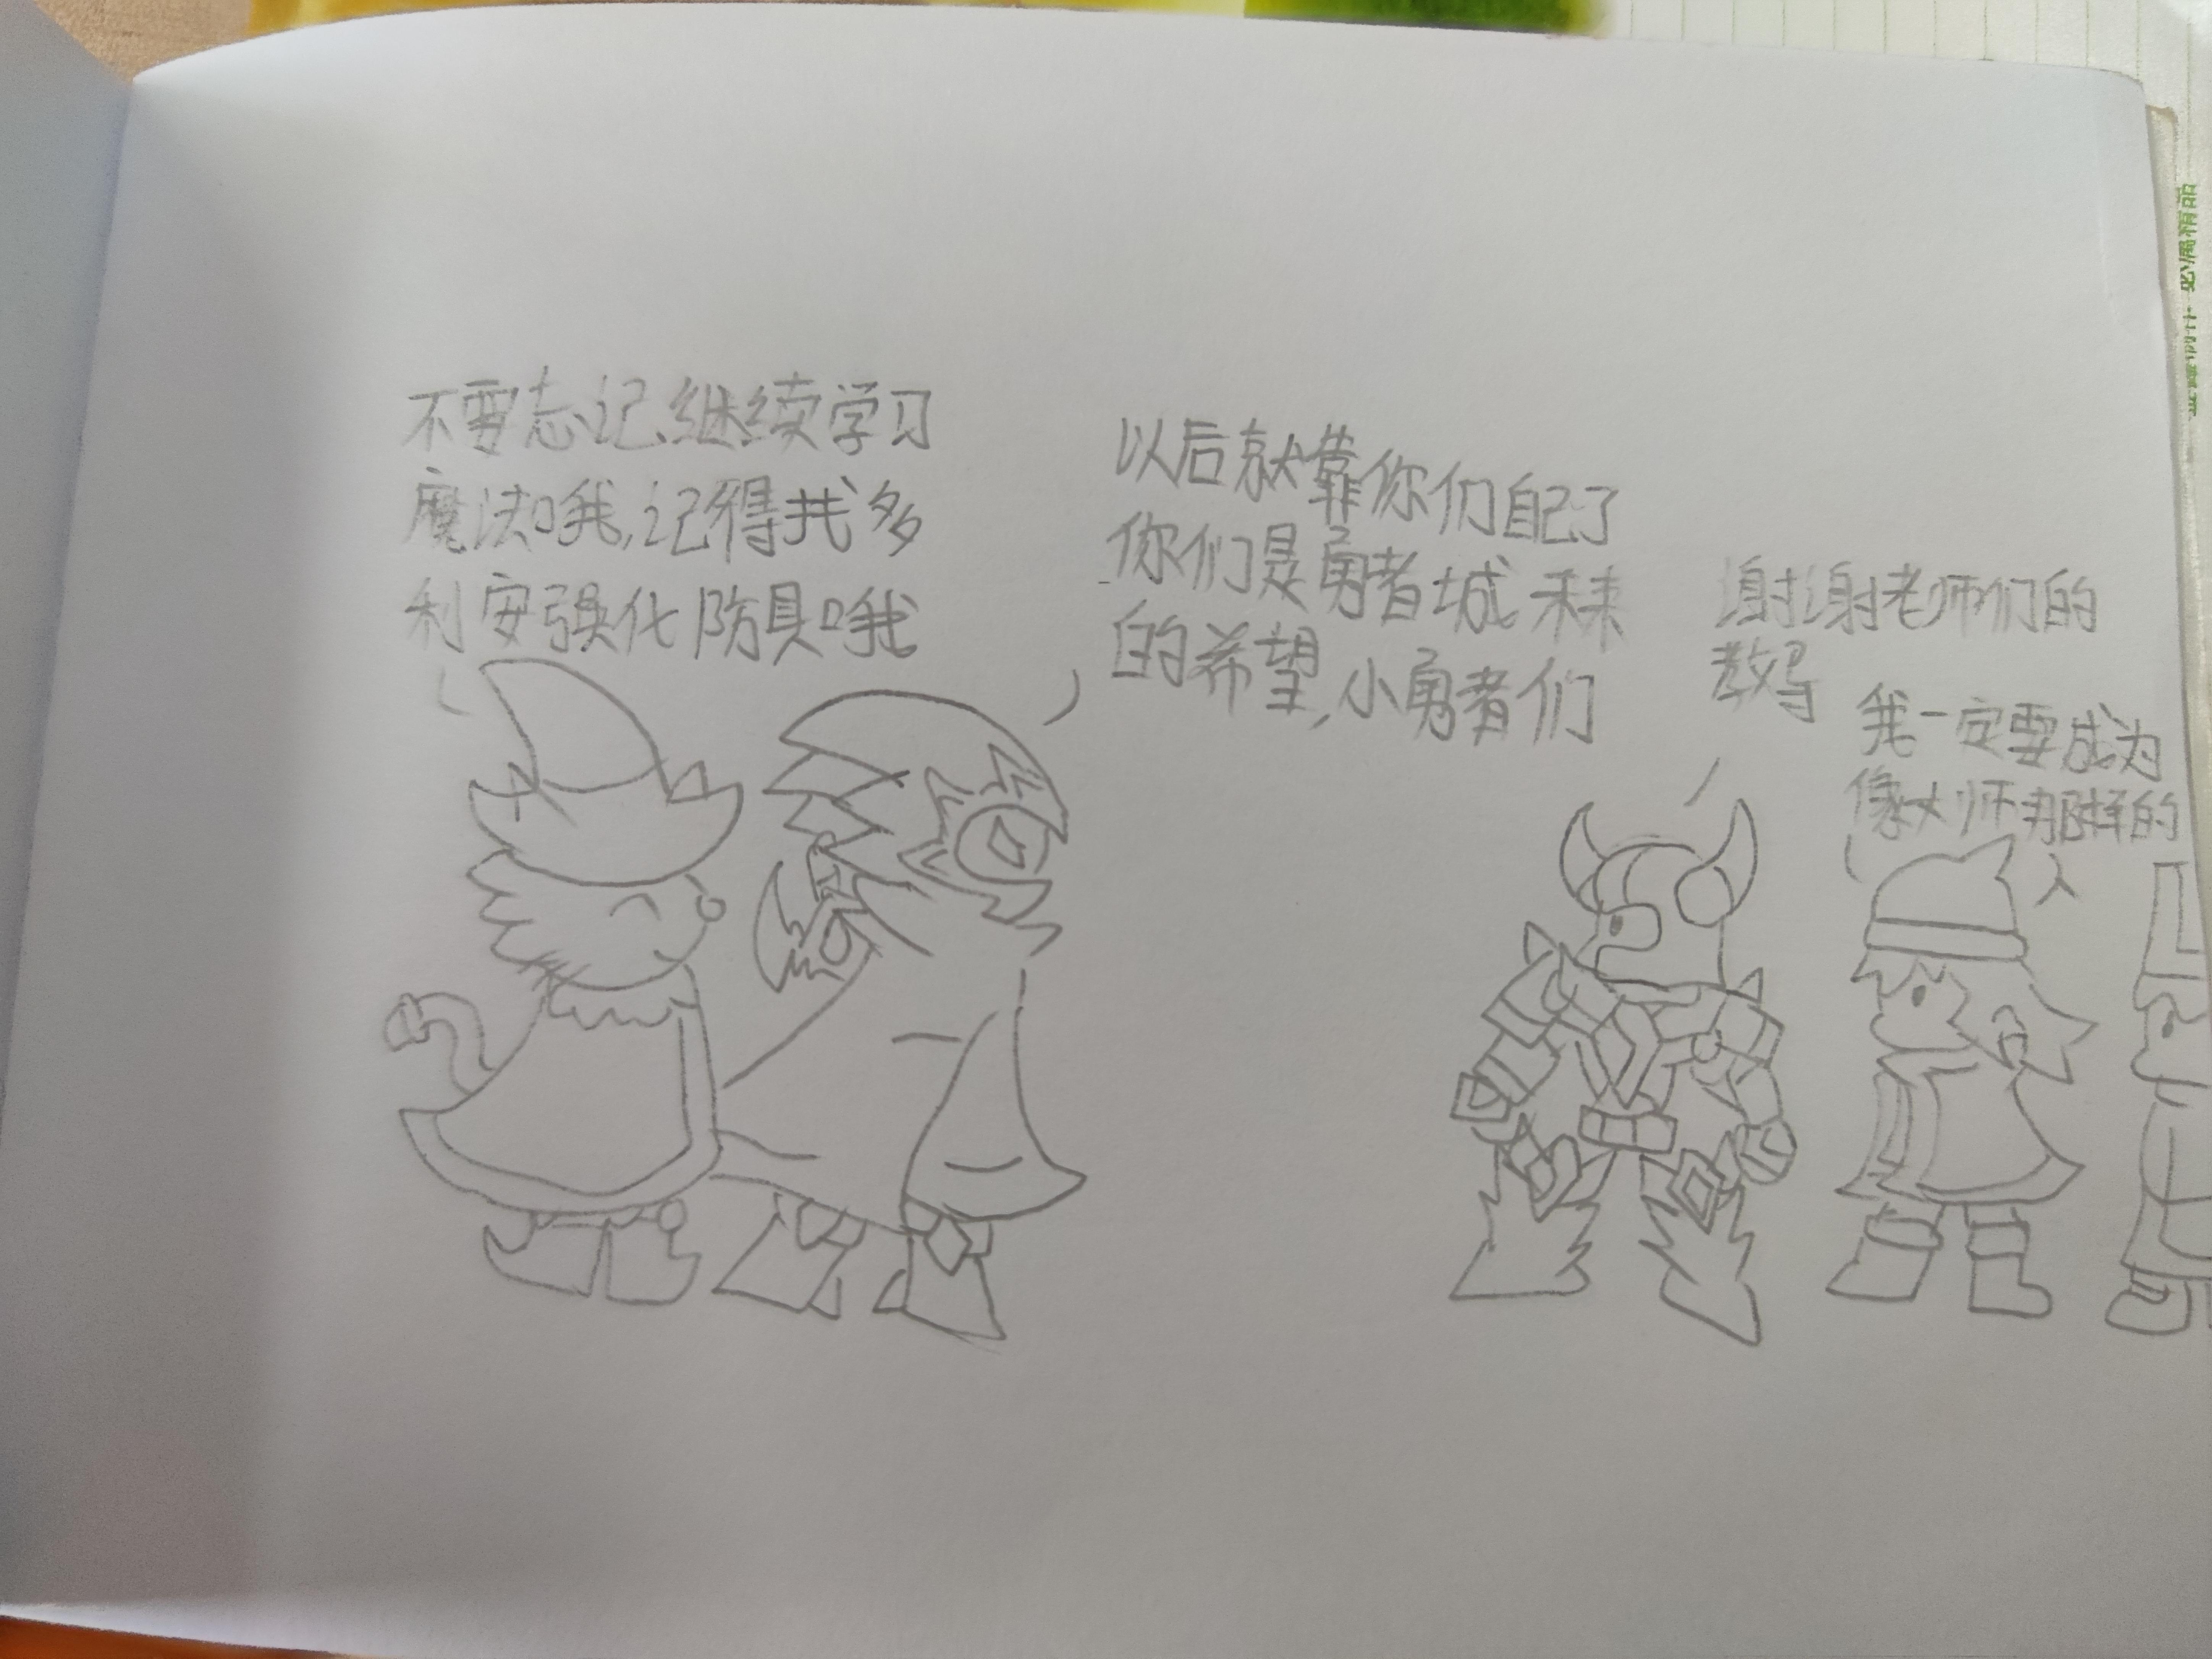 不要忘记继续学习
魔法哦,记得找多
利安强化防具哦
以后就靠你们自己了
你们是勇者城未来
的希望,小勇者们
谢谢老师们的
教导
我一定要成为
像大师那样的
人
必属精品